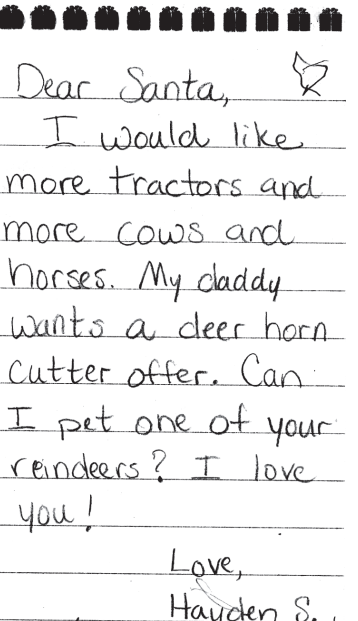 Dear Santa,
I would like
more tractors and
more cows and
horses. My daddy
wants a deer horn
cutter offer. Can
I pet one of your
reindeers? I love
you!
Love,
Hayden S.